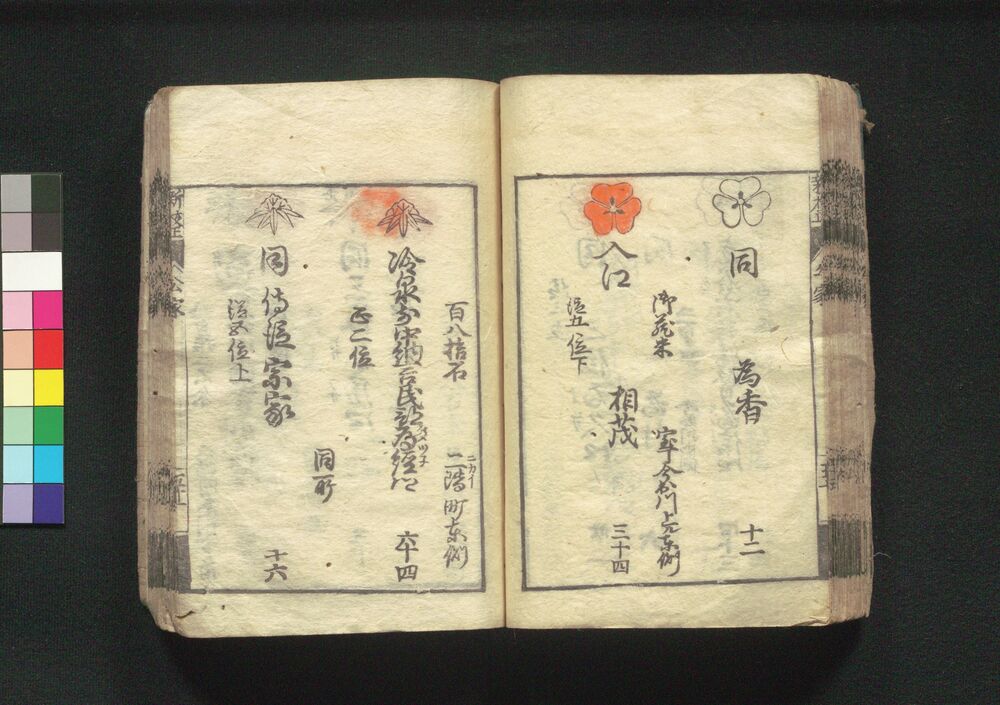 同 為香 十二
御蔵米
入江 相茂 三十四
従五位下
百八拾石
二階町東側
ニカイ
冷泉前中納言民部 六十四
正二位
同所
同侍従宗家 十六
従五位上
公家
公家